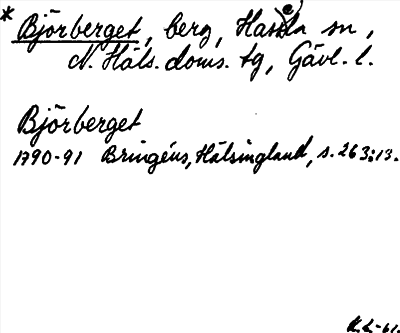 * Björberget, berg, Hassela sn,
N. Häls. doms. tg, Gävl. l.
Björberget
1790-91 Bringéus, Hälsingland, s. 263:13.
K.L-61.